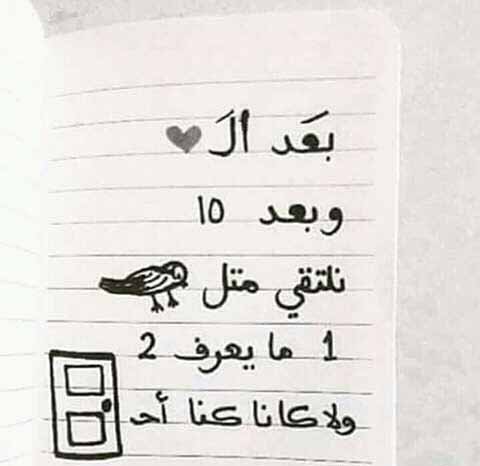 بَعَد ألَ
وبعد ١٥
نلتقي متل
1 ما يعرف 2
ولا كانا كنا أحـ